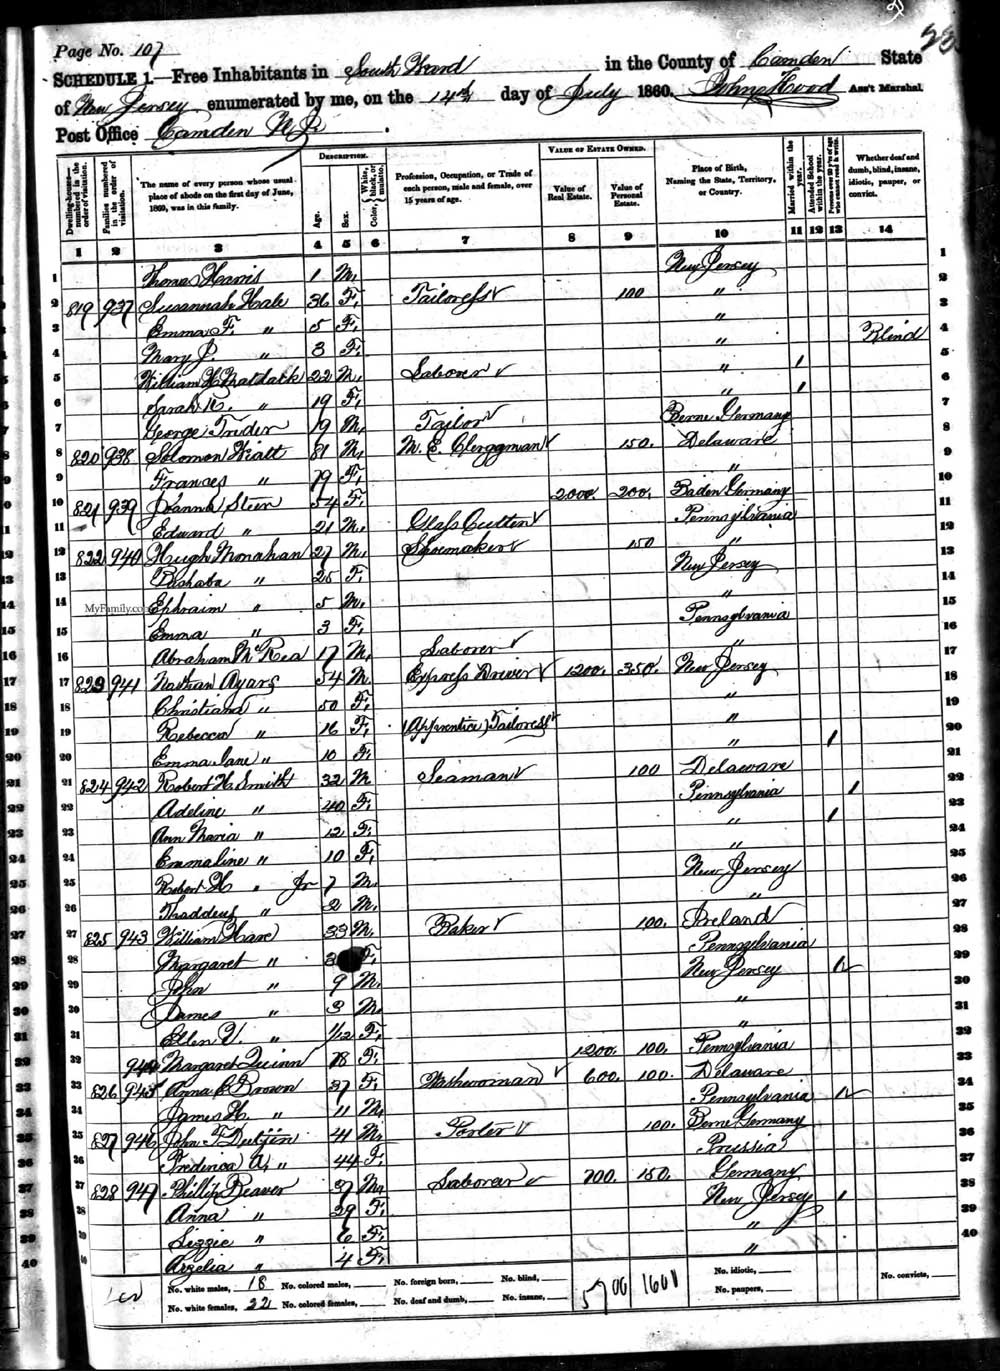 Page No. 107
SCHEDULE 1.—Free Inhabitants in South Ward in the County of Camden State
of New Jersey enumerated by me, on the 14th day of July 1860. John Hood Ass't Marshal.
Post Office Camden N.J.
Dwelling-houses—numbered in the order of visitation.
Families numbered in the order of visitation.
The name of every person whose usual place of abode on the first day of June, 1860, was in this family.
DESCRIPTION.
Age.
Sex.
Color, White, black, or mulatto.
Profession, Occupation, or Trade of each person, male and female, over 15 years of age.
VALUE OF ESTATE OWNED.
Value of Real Estate.
Value of Personal Estate.
Place of Birth, Naming the State, Territory, or Country.
Married within the year.
Attended School within the year.
Persons over 20 y'rs of age who cannot read & write.
Whether deaf and dumb, blind, insane, idiotic, pauper, or convict.
1 2 3 4 5 6 7 8 9 10 11 12 13 14
1 Thomas Harris 1 M. New Jersey
2 819 937 Susannah Hale 36 F. Tailoress 100 "
3 Emma F. " 5 F. "
4 Mary J. " 3 F. " Blind
5 William H. Matlack 22 M. Laborer " 1
6 Sarah R. " 19 F. " 1
7 George 19 M. Tailor Berne Germany
8 820 938 Solomon Hiatt 81 M. M. E. Clergyman 150. Delaware
9 Frances " 79 F. "
10 821 939 Joanna Stein 54 F. 2000. 200. Baden Germany
11 Edward " 21 M. Glass Cutter Pennsylvania
12 822 940 Hugh Monahan 27 M. Shoemaker 150 "
13 Bashaba " 25 F. New Jersey
14 Ephraim " 5 M. "
MyFamily.com
15 Emma " 3 F. Pennsylvania
16 Abraham McRea 17 M. Laborer "
17 823 941 Nathan Ayars 54 M. Express Driver 1200. 350. New Jersey
18 Christiana " 50 F. "
19 Rebecca " 16 F. (Apprentice) Tailoress "
20 Emma Jane " 10 F. " 1
21 824 942 Robert H. Smith 32 M. Seaman 100 Delaware
22 Adeline " 40 F. Pennsylvania 1
23 Ann Maria " 12 F. " 1
24 Emmaline " 10 F. "
25 Robert H " Jr 7 M. New Jersey
26 Thaddeus " 2 M. "
27 825 943 William Hare 33 M. Baker 100. Ireland
28 Margaret " F. Pennsylvania
29 John " 9 M. New Jersey
30 James " 3 M. "
31 Ellen V. " 1/12 F. "
32 944 Margaret Quinn 78 F. 1200. 100. Pennsylvania
33 826 945 Anna C Brown 37 F. Washwoman 600. 100. Delaware
34 James H. " 11 M. Pennsylvania
35 827 946 John F 41 M. Porter 100. Berne Germany
36 Frederica A. " 44 F. Prussia
37 828 947 Phillip Beaver 37 M. Laborer 700. 150. Germany
38 Anna " 29 F. New Jersey 1
39 Lizzie " 6 F. "
40 Arzelia " 4 F. "
No. white males, 18 No. colored males, No. foreign born, No. blind, 5700 1600 No. idiotic, No. convicts,
No. white females, 22 No. colored females, No. deaf and dumb, No. insane, No. paupers,